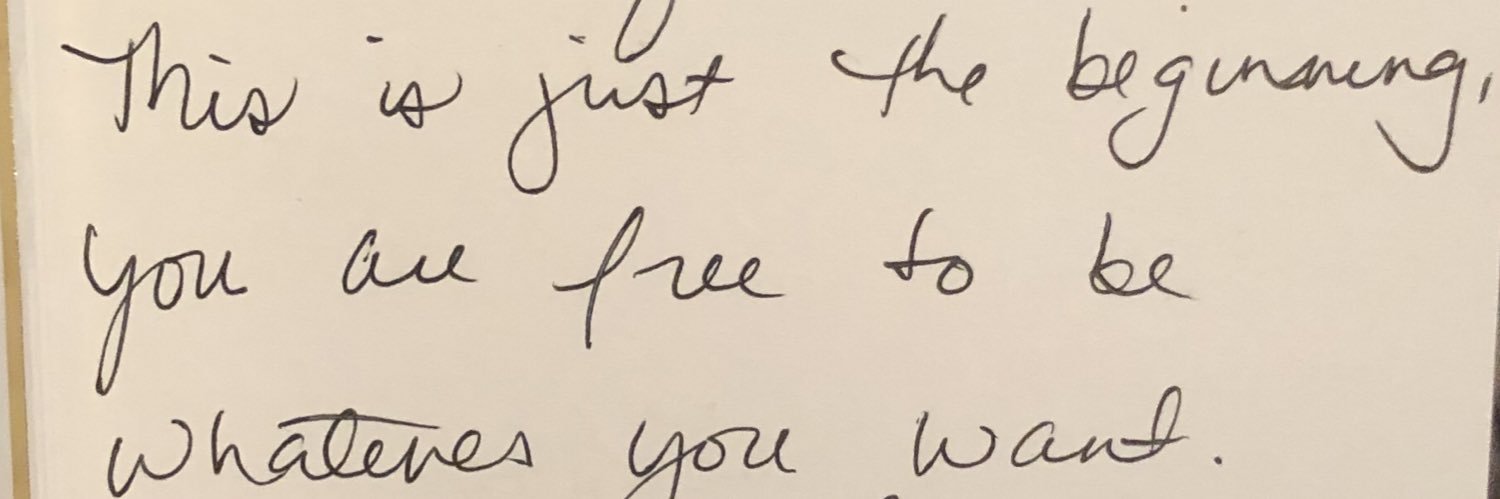 This is just the beginning,
you are free to be
whatever you want.